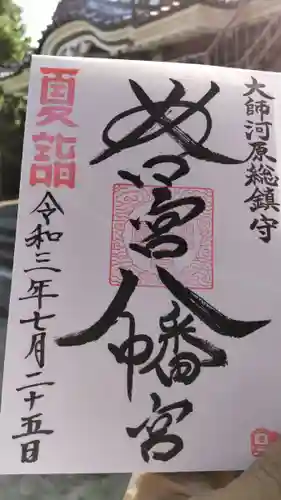 大師河原総鎮守
若宮八幡宮
夏詣
令和三年七月二十五日